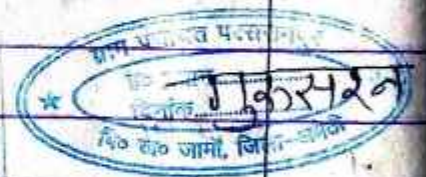 ग्राम पंचायत
दिनांक
गुरुसरन
वि० ख० जामों, जिला-अमेठी